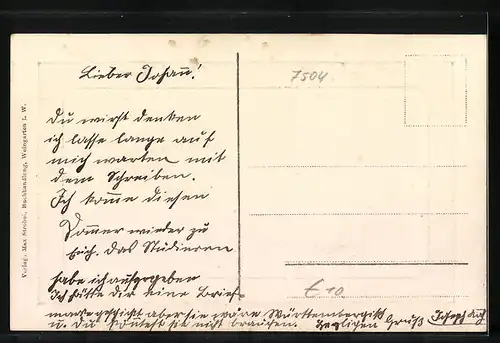 Lieber Johann!
7504
Du wirst denken
ich lasse lange auf
mich warten mit
dem Schreiben.
Ich kome diesen
Somer wieder zu
Euch. Das Studieren
habe ich aufgegeben
Ich hätte dir eine Brief-
marke geschickt aber sie wäre Württembergisch
u. du könntest sie nicht brauchen. Herzlichen Gruß Joseph
€ 10
Verlag: Max Strobel, Buchhandlung, Weingarten i. W.